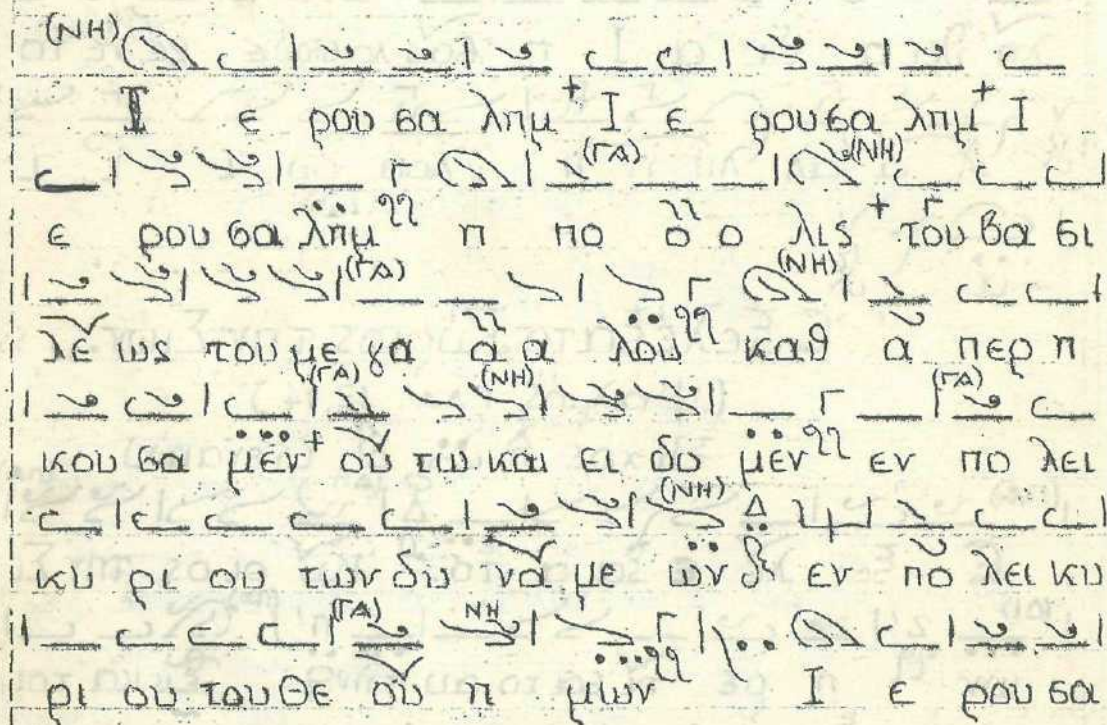 (ΝΗ)
Ι ε ρου σα λημ Ι ε ρουσα λημ Ι
(ΓΑ) (ΝΗ)
ε ρου σα λημ η πο ο ο λις του βα σι
(ΓΑ) (ΝΗ)
λέ ως του με γα α α λου καθ α περ η
(ΓΑ) (ΝΗ) (ΓΑ)
κου σα μεν ού τω και ει δο μεν εν πο λει
(ΝΗ) Δ
κυ ρι ου των δυ νά με ων εν πο λει κυ
(ΓΑ) ΝΗ
ρι ου του Θε ού η μων Ι ε ρου σα